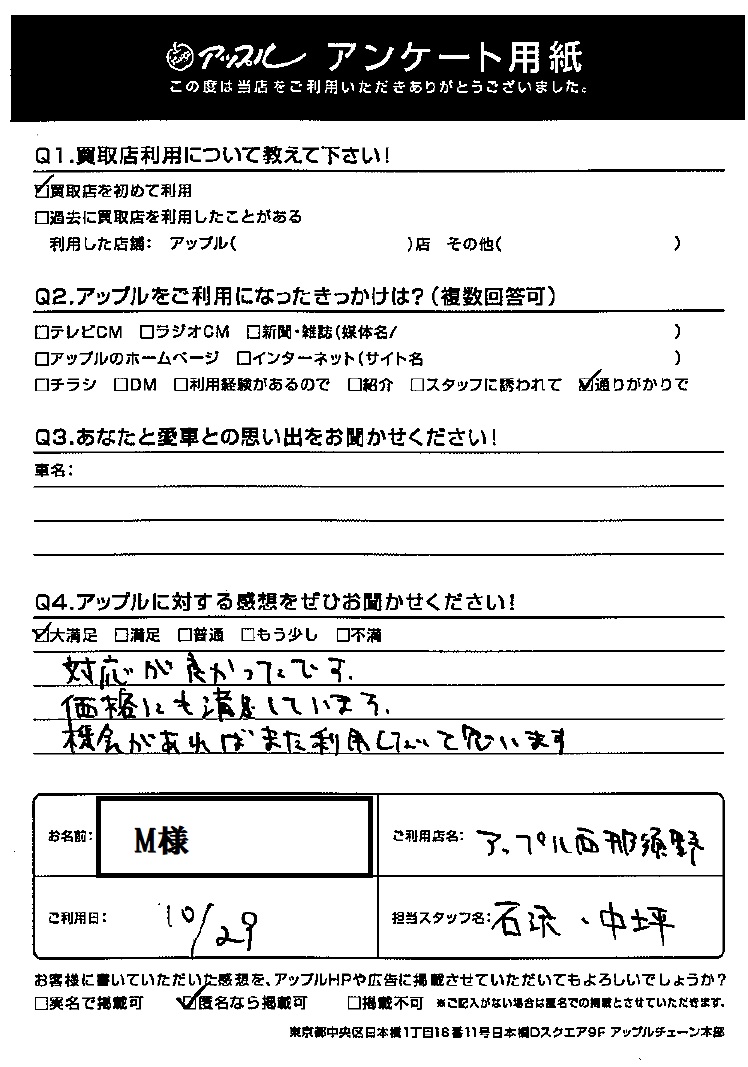 アップル アンケート用紙
この度は当店をご利用いただきありがとうございました。
Q1.買取店利用について教えて下さい!
☑買取店を初めて利用
□過去に買取店を利用したことがある
利用した店舗: アップル( )店 その他( )
Q2.アップルをご利用になったきっかけは?(複数回答可)
□テレビCM □ラジオCM □新聞・雑誌(媒体名/ )
□アップルのホームページ □インターネット(サイト名 )
□チラシ □DM □利用経験があるので □紹介 □スタッフに誘われて ☑通りがかりで
Q3.あなたと愛車との思い出をお聞かせください!
車名:
Q4.アップルに対する感想をぜひお聞かせください!
☑大満足 □満足 □普通 □もう少し □不満
対応が良かったです.
価格にも満足しています.
機会があればまた利用したいと思います
お名前: M様
ご利用店名: アップル西那須野
ご利用日: 10/29
担当スタッフ名: 石沢・中坪
お客様に書いていただいた感想を、アップルHPや広告に掲載させていただいてもよろしいでしょうか?
□実名で掲載可 ☑匿名なら掲載可 □掲載不可 ※ご記入がない場合は匿名での掲載とさせていただきます。
東京都中央区日本橋1丁目16番11号日本橋Dスクエア9F アップルチェーン本部